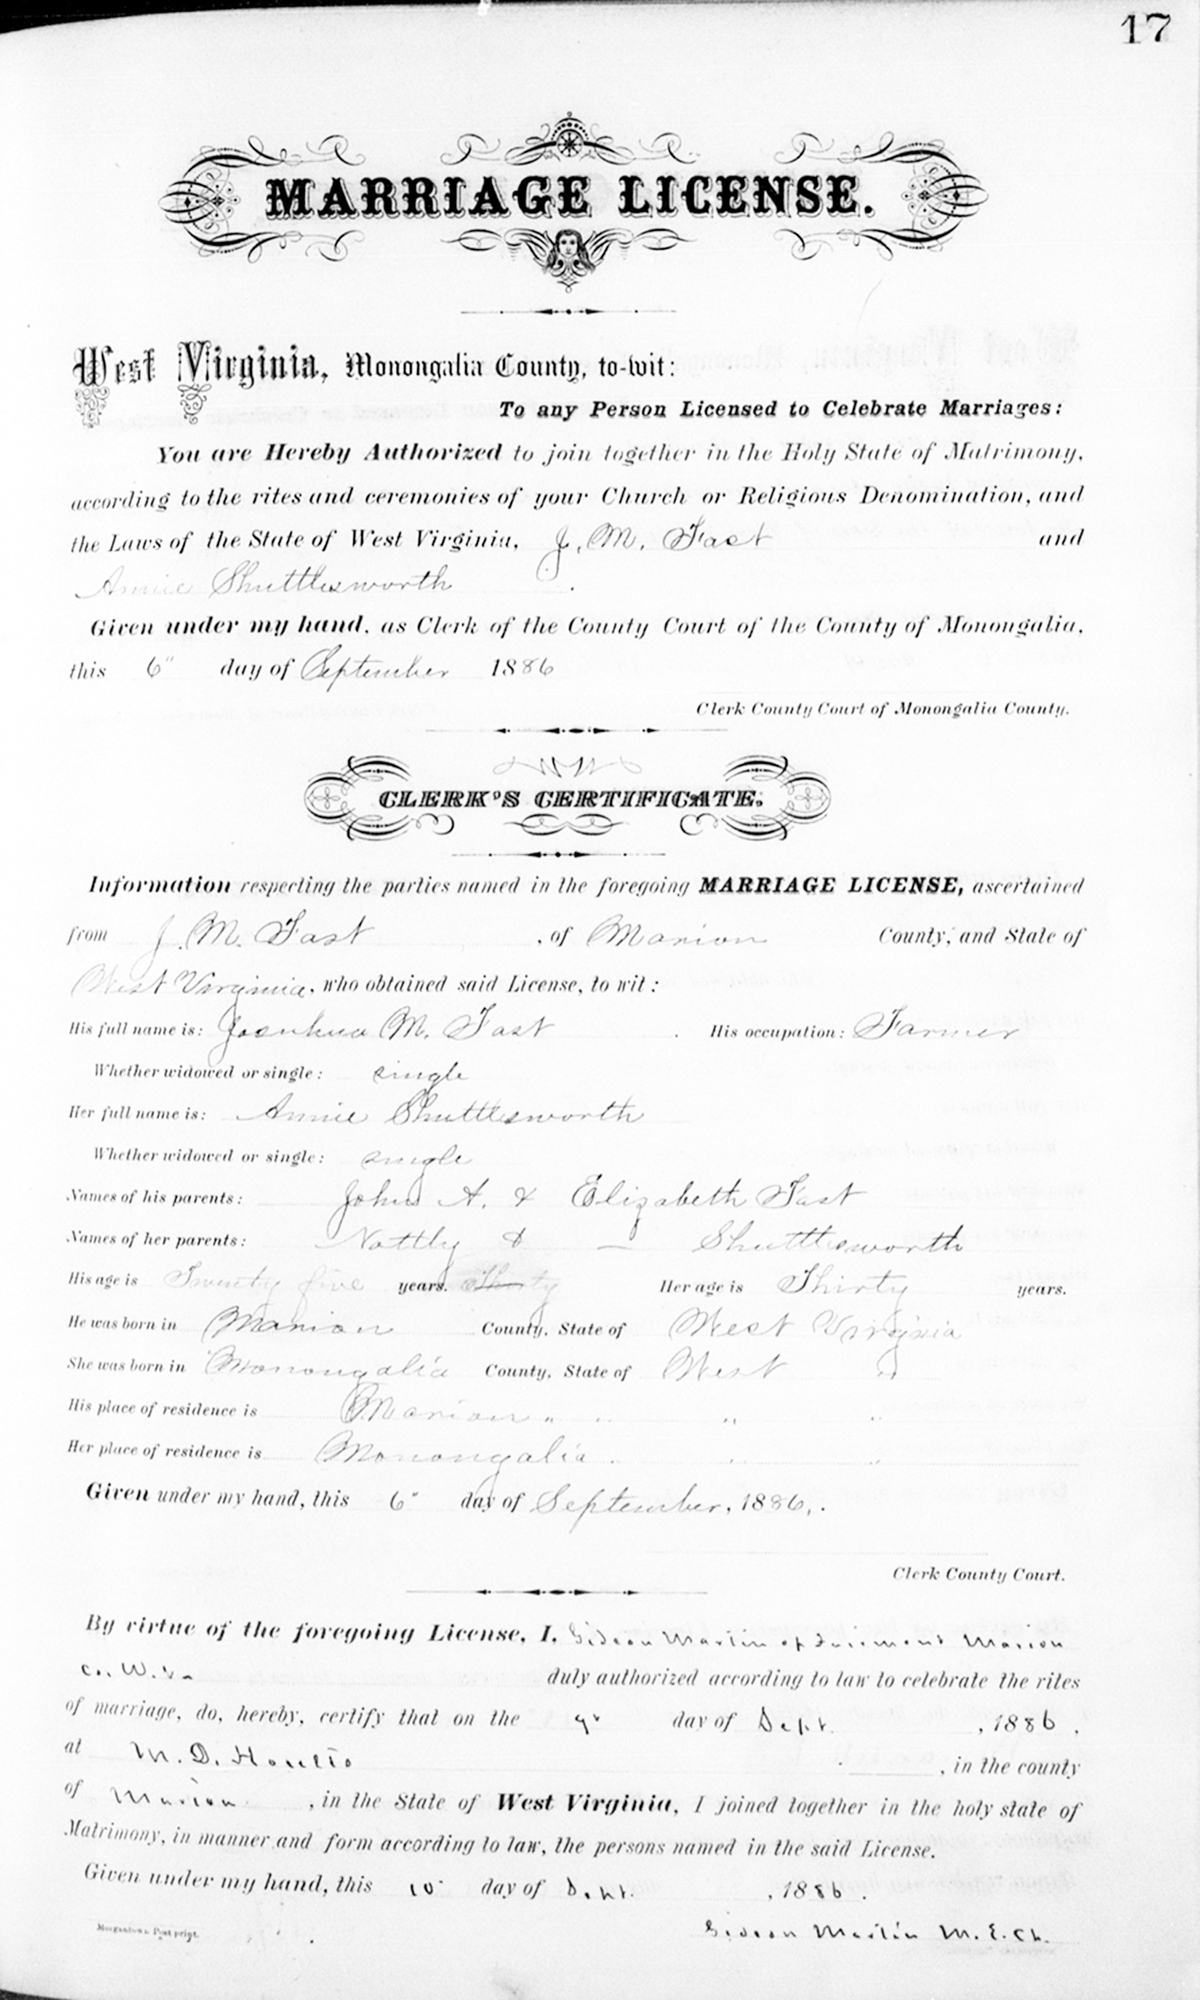 17
MARRIAGE LICENSE.
West Virginia, Monongalia County, to-wit:
To any Person Licensed to Celebrate Marriages:
You are Hereby Authorized to join together in the Holy State of Matrimony,
according to the rites and ceremonies of your Church or Religious Denomination, and
the Laws of the State of West Virginia, J. M. Fast and
Annie Shuttlesworth.
Given under my hand, as Clerk of the County Court of the County of Monongalia,
this 6" day of September 1886
Clerk County Court of Monongalia County.
CLERK'S CERTIFICATE.
Information respecting the parties named in the foregoing MARRIAGE LICENSE, ascertained
from J. M. Fast, of Marion County, and State of
West Virginia, who obtained said License, to wit:
His full name is: Joeuhua M. Fast. His occupation: Farmer
Whether widowed or single: single
Her full name is: Annie Shuttlesworth
Whether widowed or single: single
Names of his parents: John A. & Elizabeth Fast
Names of her parents: Nottly & — Shuttlesworth
His age is Twenty five years. Thirty Her age is Thirty years.
He was born in Marion County, State of West Virginia
She was born in Monongalia County, State of West "
His place of residence is Marion " " " "
Her place of residence is Monongalia " " "
Given under my hand, this 6" day of September, 1886,.
Clerk County Court.
By virtue of the foregoing License, I, Gideon Martin of Fairmont Marion
Co. W. Va duly authorized according to law to celebrate the rites
of marriage, do, hereby, certify that on the 9" day of Sept. , 1886.
at M. D. Hoults , in the county
of Marion , in the State of West Virginia, I joined together in the holy state of
Matrimony, in manner and form according to law, the persons named in the said License.
Given under my hand, this 10" day of Sept. , 1886.
Morgantown Post print.
Gideon Martin M. E. Ch.